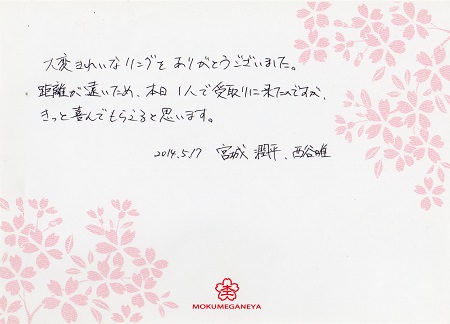 大変きれいなリングをありがとうございました。
距離が遠いため、本日1人で受取りに来たんですが、
きっと喜んでもらえると思います。
2014.5.17 宮城 潤平、西谷唯
MOKUMEGANEYA